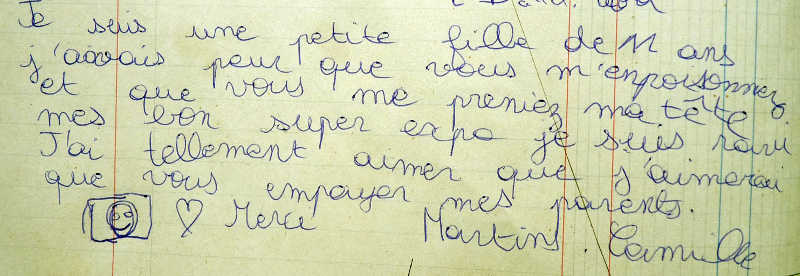 Je suis une petite fille de 11 ans
j'avais peur que vous m'enpoisonnez
et que vous me preniez ma tête.
mes bon super expo je suis ravi
J'ai tellement aimer que j'aimerai
que vous empayer mes parents.
Merci Martins . Camille